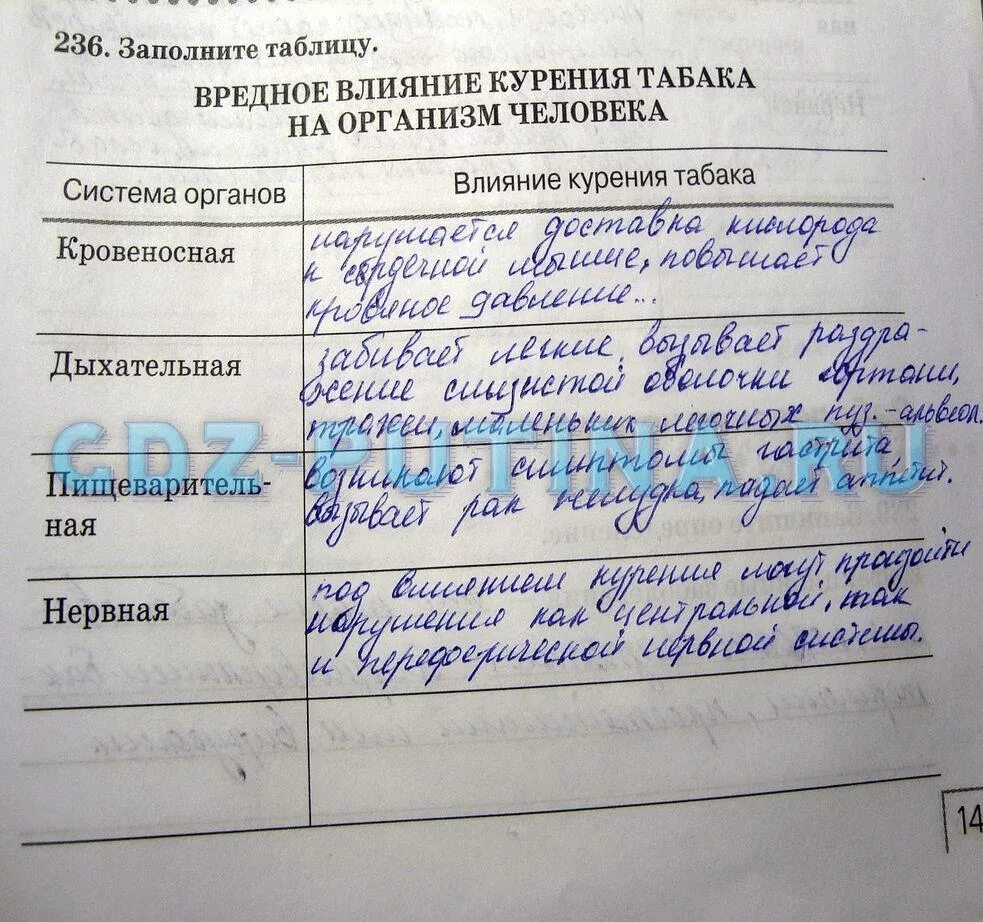 236. Заполните таблицу.
ВРЕДНОЕ ВЛИЯНИЕ КУРЕНИЯ ТАБАКА
НА ОРГАНИЗМ ЧЕЛОВЕКА
Система органов
Влияние курения табака
Кровеносная
нарушается доставка кислорода
к сердечной мышце, повышает
кровяное давление...
Дыхательная
забивает легкие, вызывает раздра-
жение слизистой оболочки гортани,
трахеи, маленьких легочных пуз.-альвеол.
Пищеваритель-
ная
возникают симптомы гастрита,
вызывает рак желудка, падает аппетит.
Нервная
под влиянием курения могут
нарушения как центральной, так
и нервной системы.
GDZ-PUTINA.RU
14